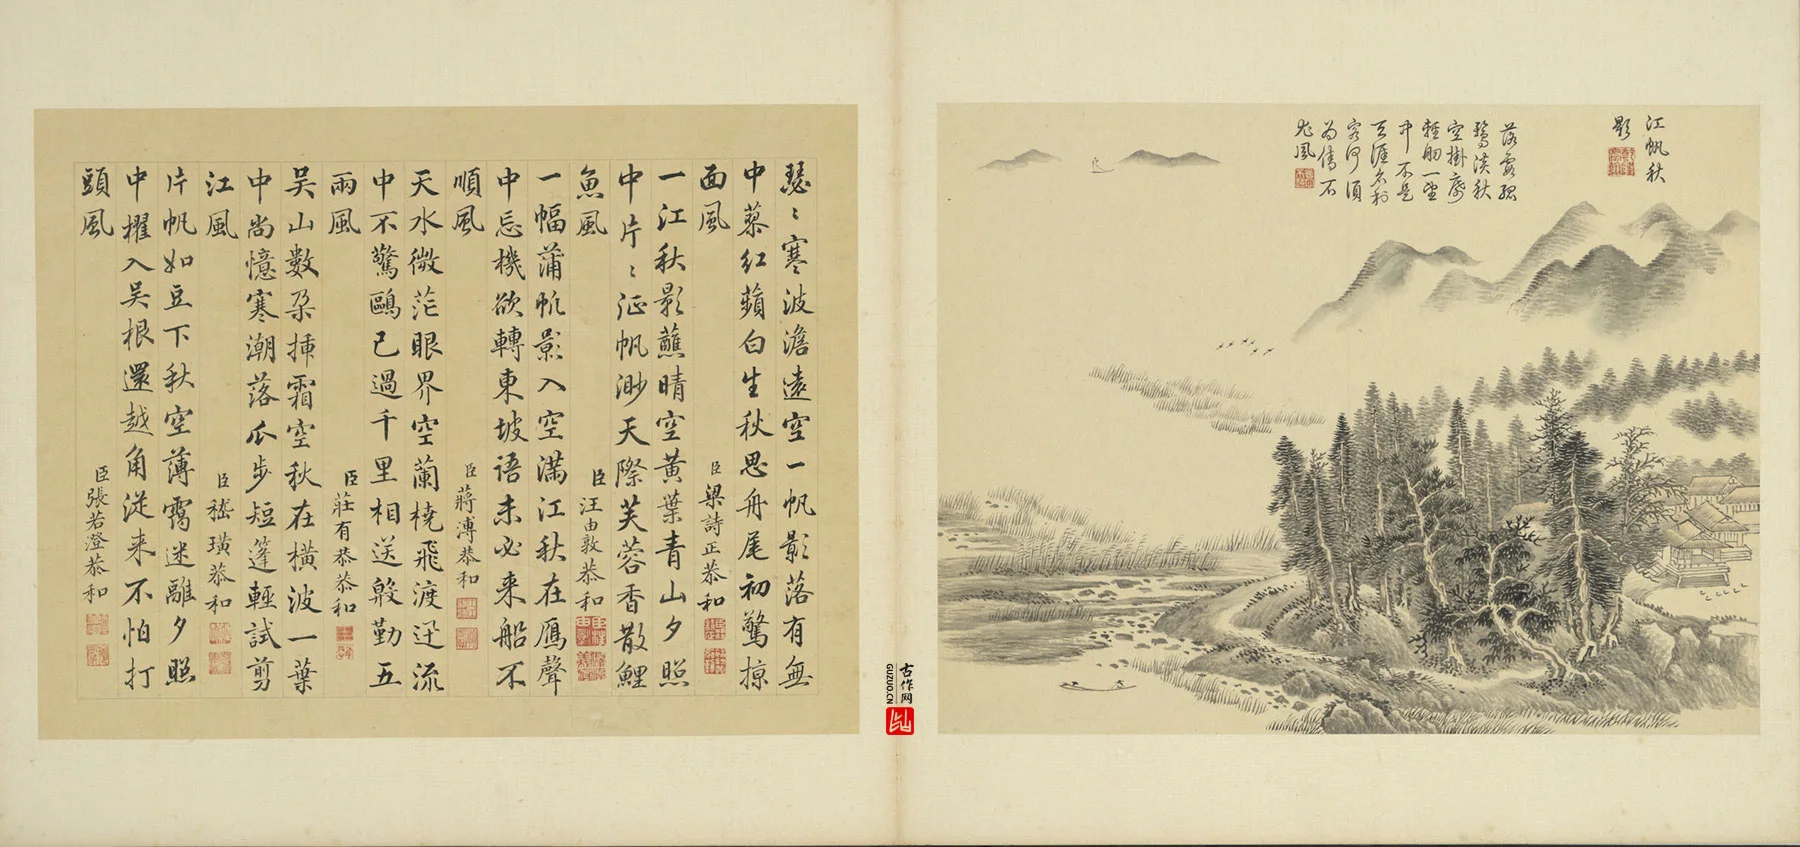 江帆秋
影
落霞孤
鶩淡秋
空掛席
輕舠一望
中不是
天涯名利
客何須
為倩石
尤風
瑟〻寒波澹遠空一帆影落有無
中蓼紅蘋白生秋思舟尾初驚掠
面風 臣梁詩正恭和
一江秋影蘸晴空黃葉青山夕照
中片〻征帆渺天際芙蓉香散鯉
魚風 臣汪由敦恭和
一幅蒲帆影入空滿江秋在鴈聲
中忘機欲轉東坡語未必來船不
順風 臣蔣溥恭和
天水微茫眼界空蘭橈飛渡迅流
中不驚鷗已過千里相送殷勤五
兩風 臣莊有恭恭和
吳山數朶揷霜空秋在橫波一葉
中尚憶寒潮落瓜步短篷輕試剪
江風 臣嵇璜恭和
片帆如豆下秋空薄靄迷離夕照
中櫂入吳根還越角從来不怕打
頭風 臣張若澄恭和
古作网
GUZUO.CN